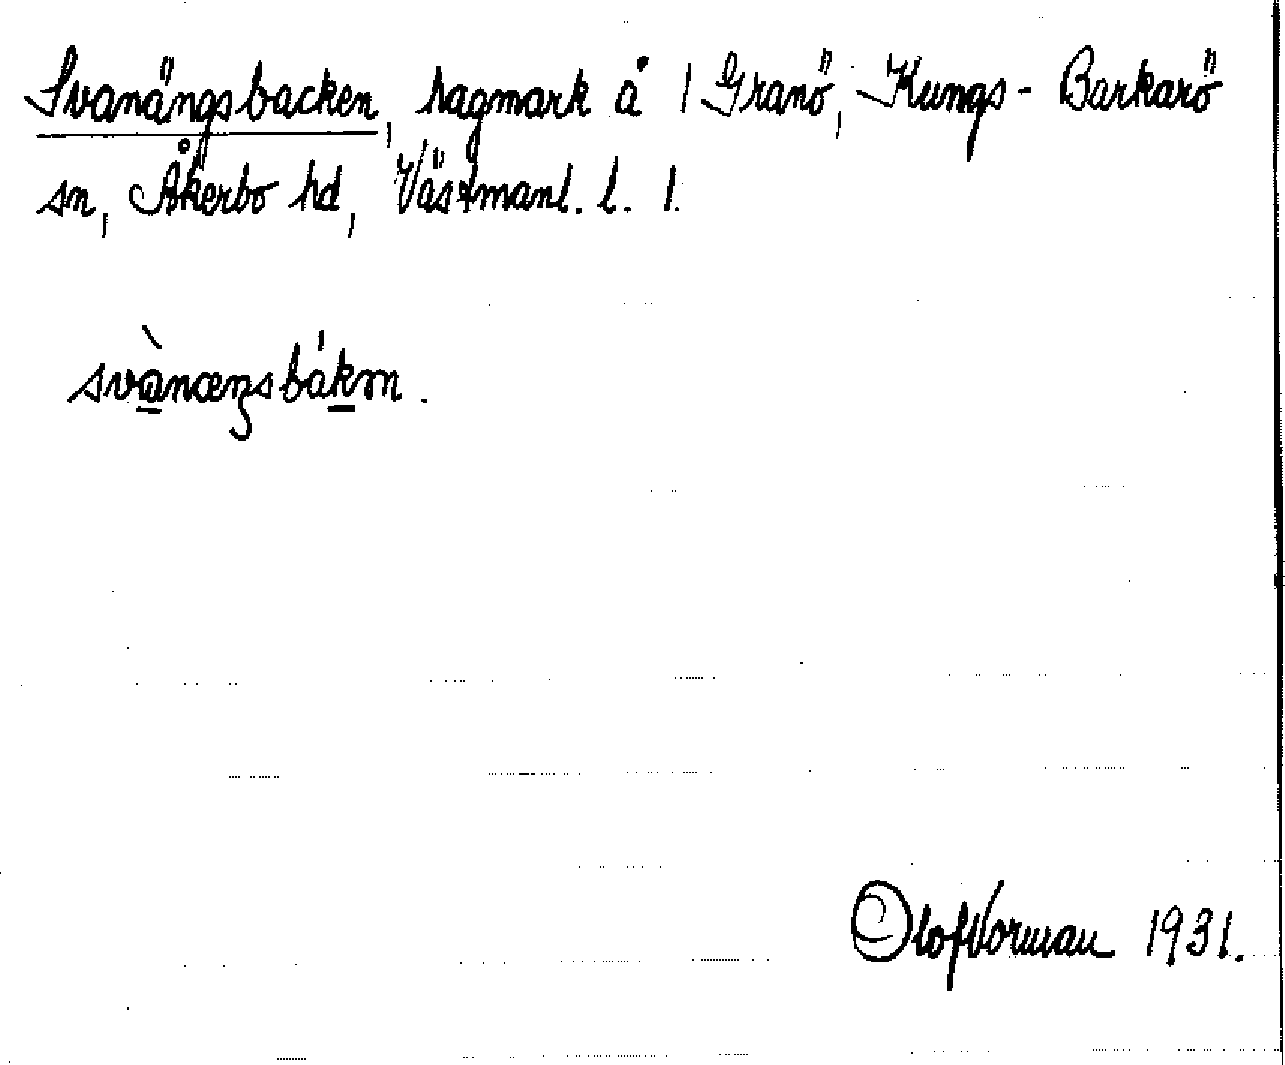 Svanängsbacken, hagmark å 1 Granö, Kungs-Barkarö
sn, Åkerbo hd, Västmanl. l. 1.
svànæŋsbákən.
Olof Norman 1931.